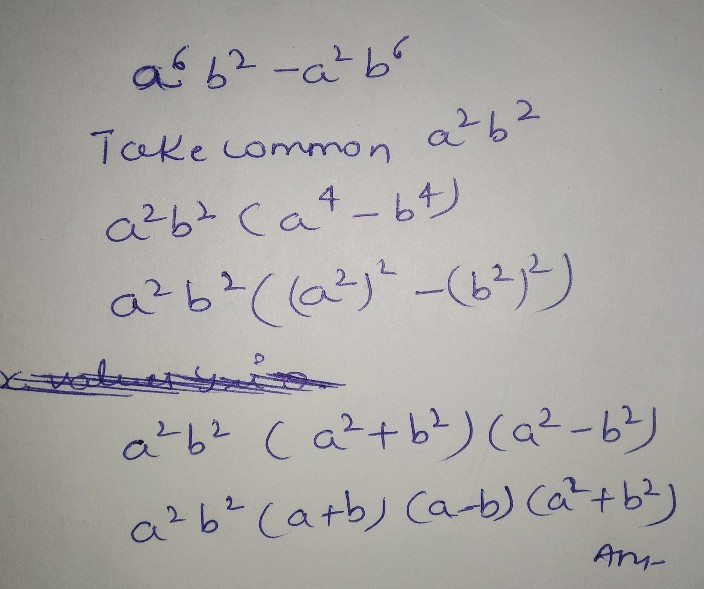 a⁶b² - a²b⁶
Take common a²b²
a²b² (a⁴ - b⁴)
a²b² ((a²)² - (b²)²)
a²b² (a² + b²) (a² - b²)
a²b² (a+b) (a-b) (a² + b²)
Ans